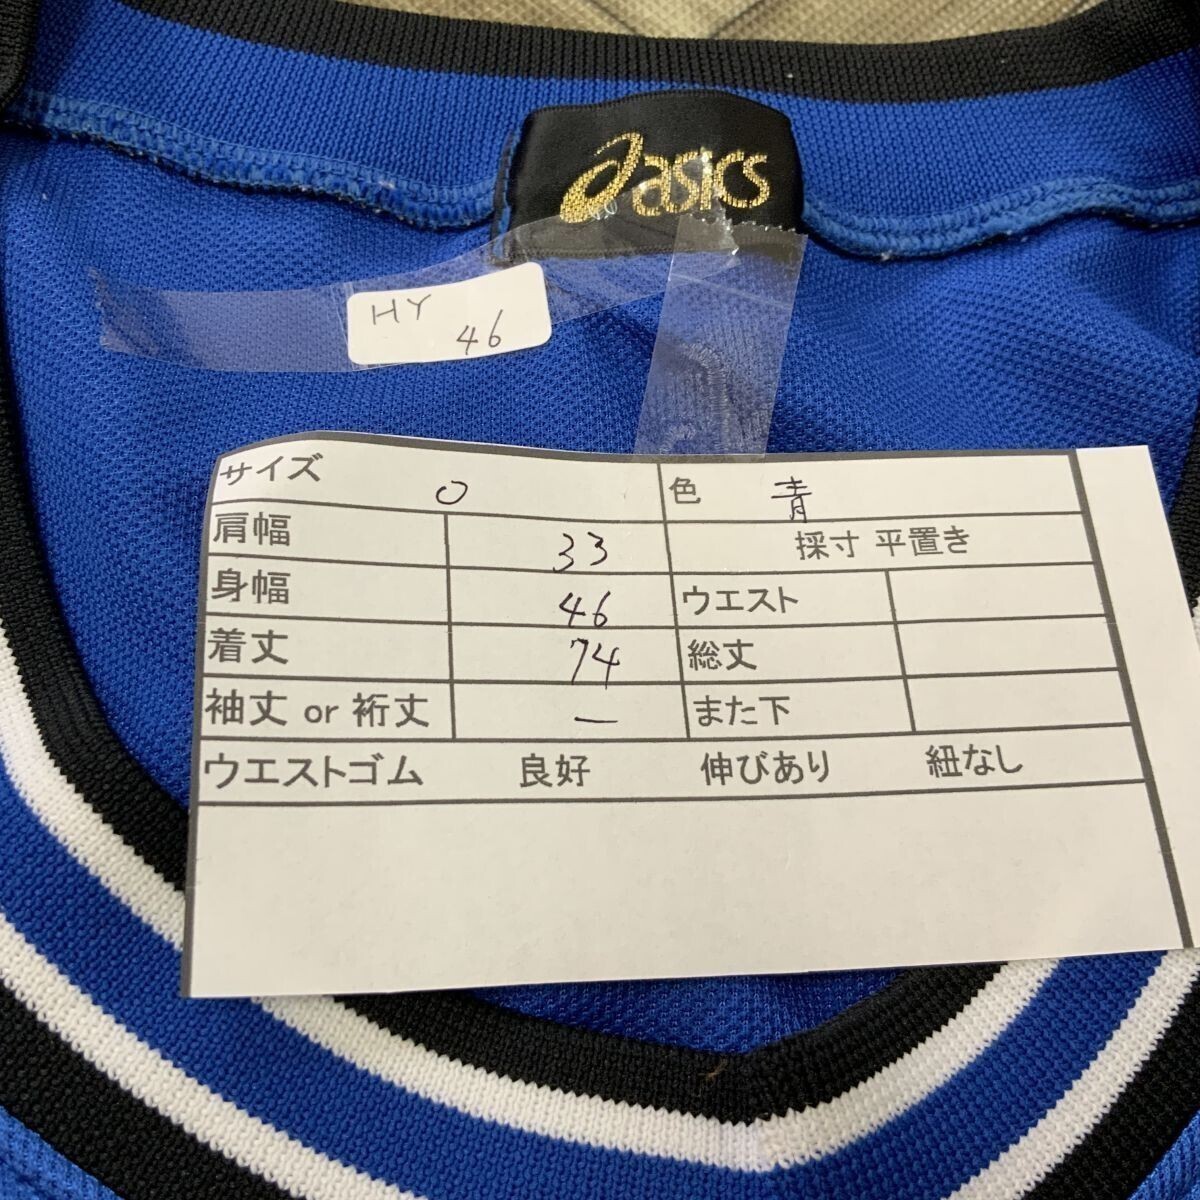 asics
HY
46
サイズ O 色 青
肩幅 33 採寸 平置き
身幅 46 ウエスト
着丈 74 総丈
袖丈 or 裄丈 — また下
ウエストゴム 良好 伸びあり 紐なし